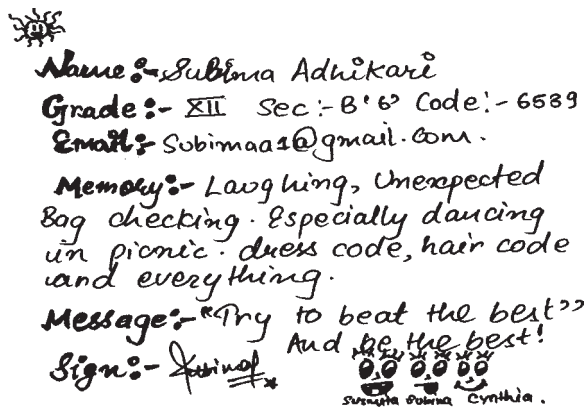 Name:- Subima Adhikari
Grade:- XII Sec:- B'6' Code:- 6539
Email:- Subimaa1@gmail.com.
Memory:- Laughing, Unexpected
Bag checking. Especially dancing
in picnic. dress code, hair code
and everything.
Message:- "Try to beat the best"
And be the best!
Sign:- Subima
Susmita Subina Cynthia.